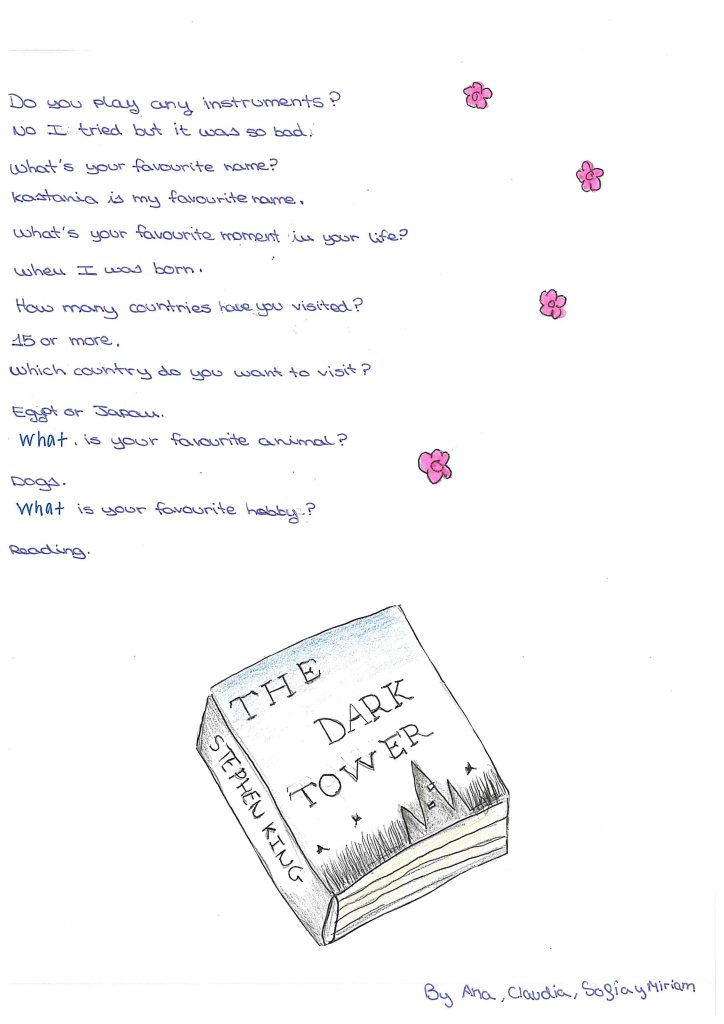 Do you play any instruments?
No I tried but it was so bad.
What's your favourite name?
Kastania is my favourite name.
What's your favourite moment in your life?
When I was born.
How many countries have you visited?
15 or more.
Which country do you want to visit?
Egipt or Japan.
What is your favourite animal?
Dogs.
What is your favourite hobby?
Reading.
THE
DARK
TOWER
STEPHEN KING
By Ana, Claudia, Sofía y Miriam